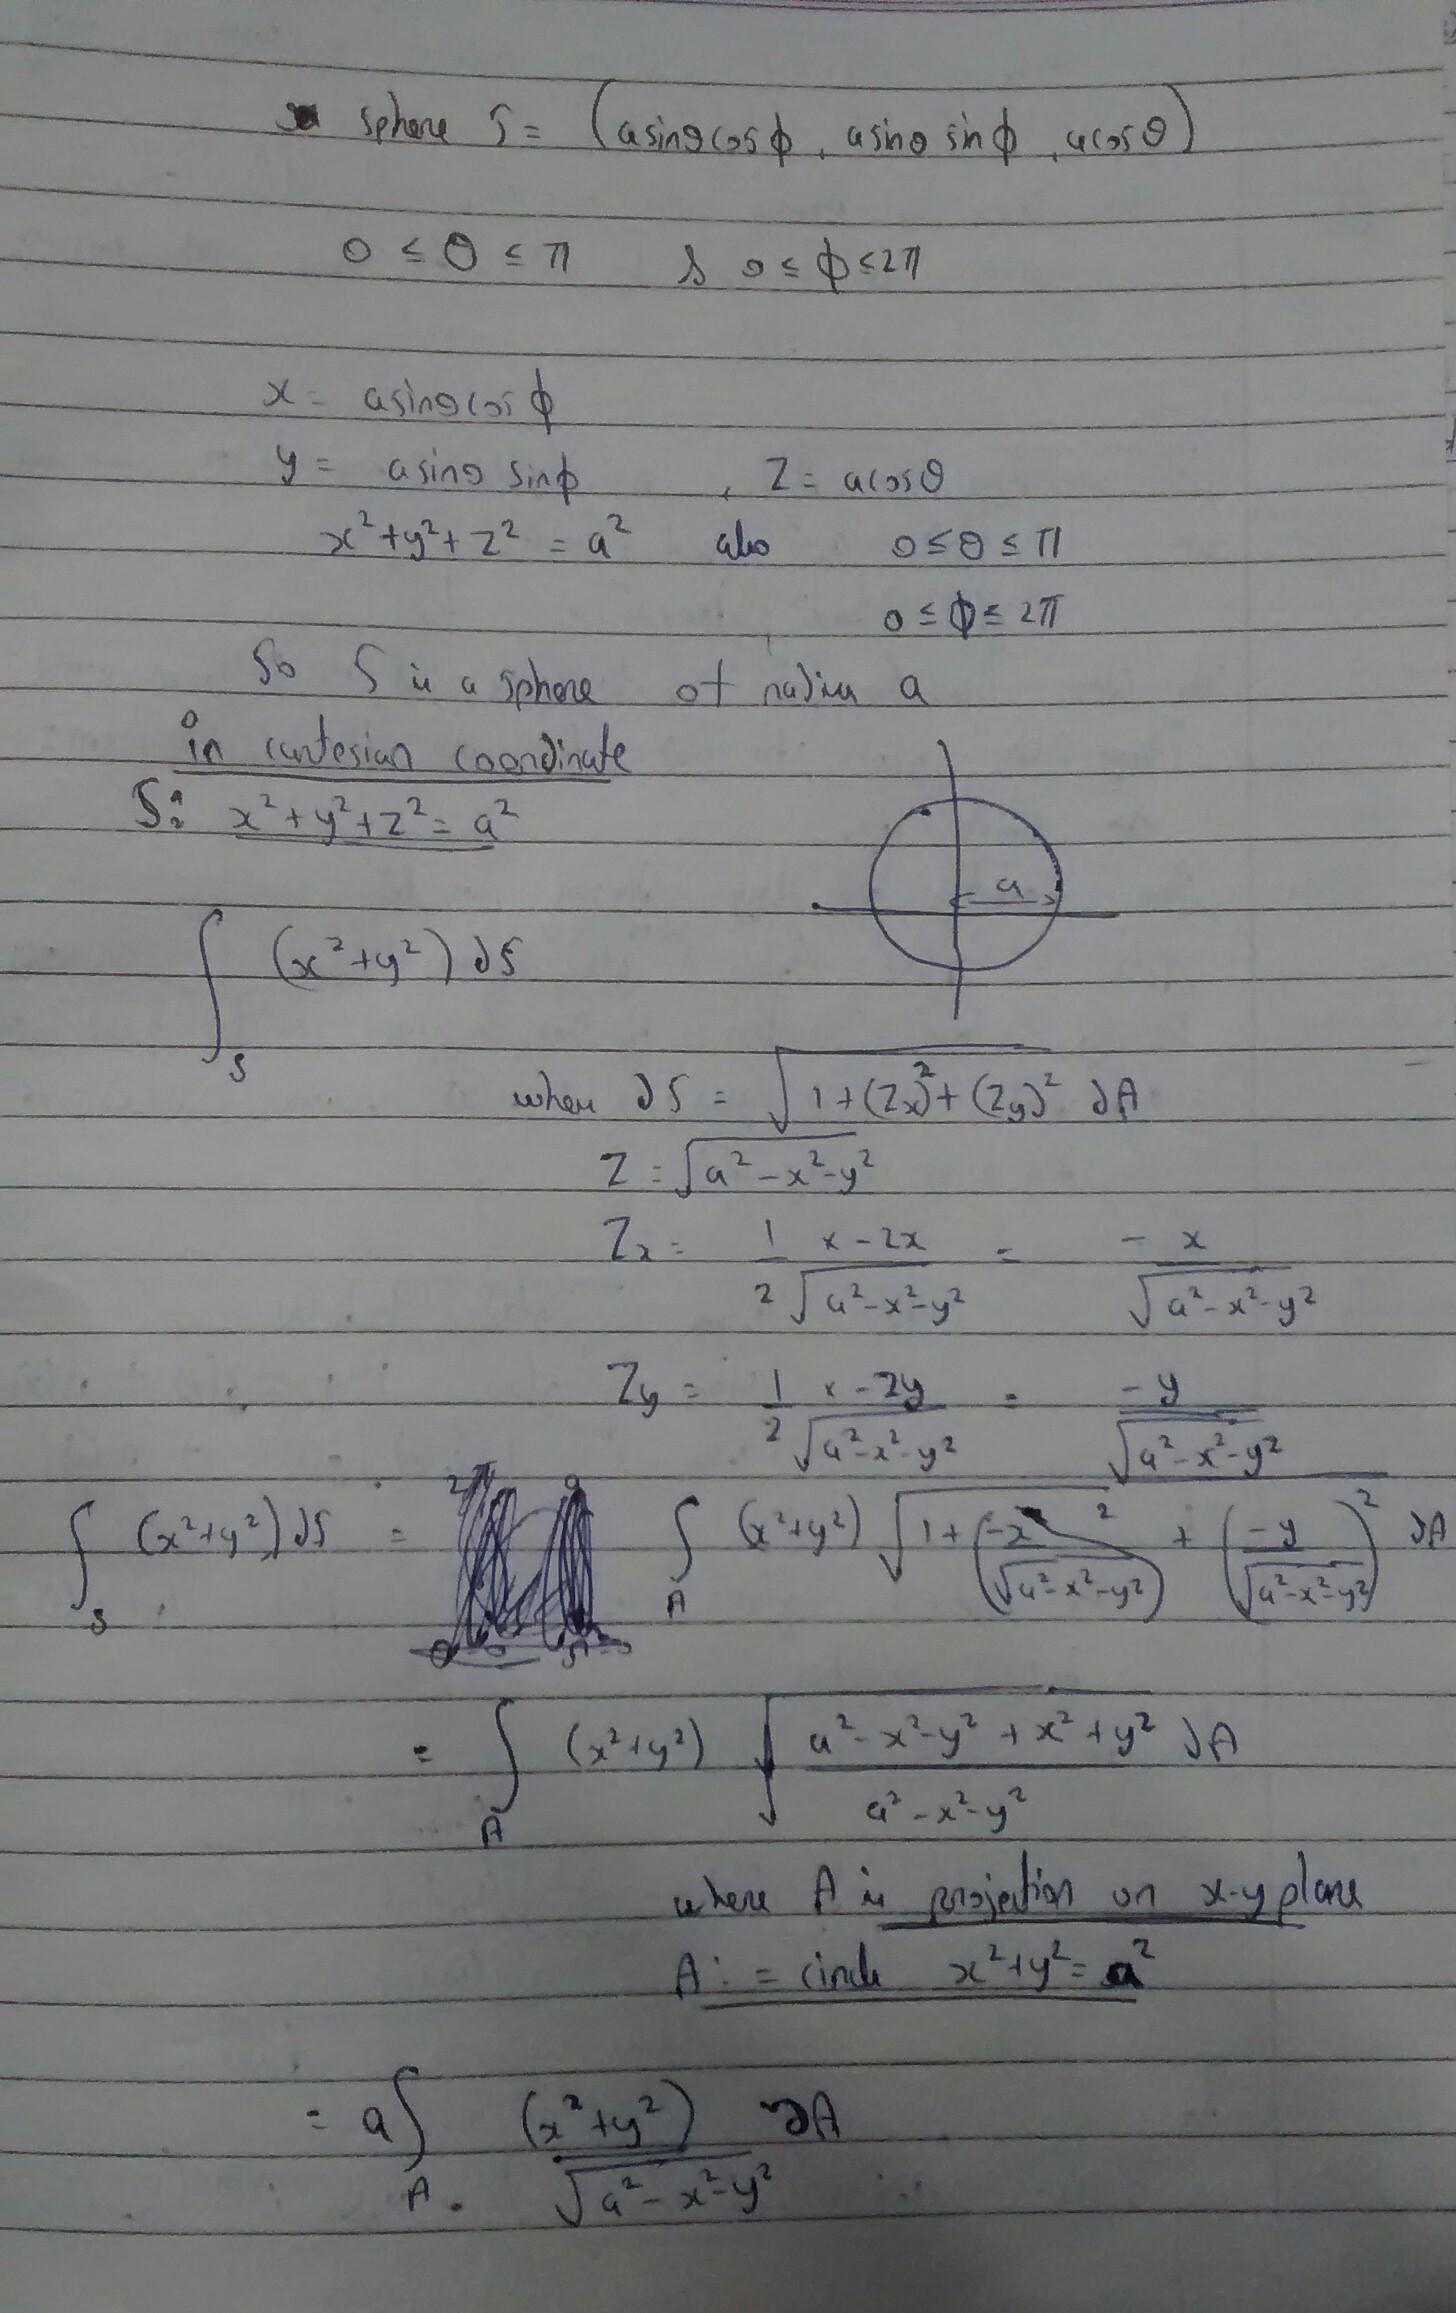 sphere S = (asinθcosϕ, asinθ sinϕ, acosθ)
0 ≤ θ ≤ π & 0 ≤ ϕ ≤ 2π
x = asinθcosϕ
y = asinθ sinϕ , z = acosθ
x² + y² + z² = a² also 0 ≤ θ ≤ π
0 ≤ ϕ ≤ 2π
So S is a sphere of radius a
in cartesian coordinate
S: x² + y² + z² = a²
a
∫_S (x² + y²) dS
where dS = √(1 + (Zx)² + (Zy)²) dA
Z = √(a² - x² - y²)
Zx = 1/2 × -2x / √(a² - x² - y²) = -x / √(a² - x² - y²)
Zy = 1/2 × -2y / √(a² - x² - y²) = -y / √(a² - x² - y²)
∫_S (x² + y²) dS = ∫_A (x² + y²) √(1 + (-x / √(a² - x² - y²))² + (-y / √(a² - x² - y²))²) dA
= ∫_A (x² + y²) √((a² - x² - y² + x² + y²) / (a² - x² - y²)) dA
where A is projection on x-y plane
A: = circle x² + y² = a²
= a ∫_A (x² + y²) / √(a² - x² - y²) dA